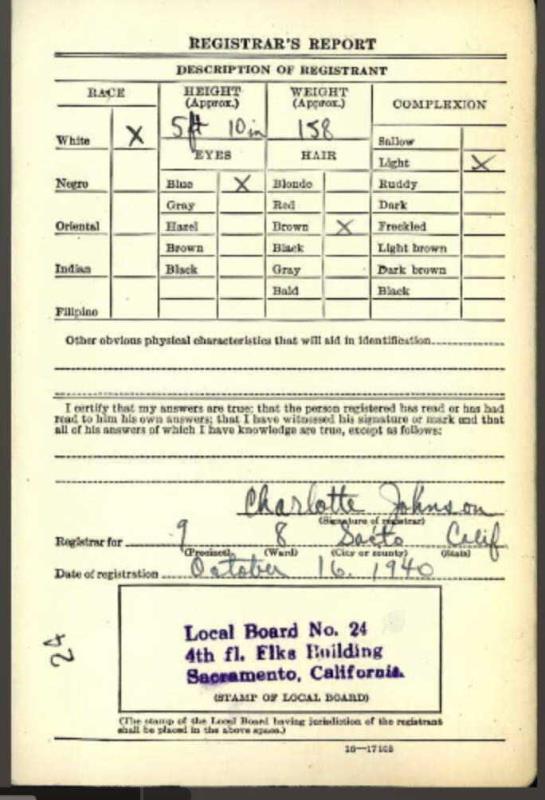 REGISTRAR'S REPORT
DESCRIPTION OF REGISTRANT
RACE
HEIGHT (Approx.)
WEIGHT (Approx.)
COMPLEXION
White X
5 ft 10 in
158
Sallow
EYES
HAIR
Light X
Negro
Blue X
Blonde
Ruddy
Gray
Red
Dark
Oriental
Hazel
Brown X
Freckled
Brown
Black
Light brown
Indian
Black
Gray
Dark brown
Bald
Black
Filipino
Other obvious physical characteristics that will aid in identification
I certify that my answers are true; that the person registered has read or has had
read to him his own answers; that I have witnessed his signature or mark and that
all of his answers of which I have knowledge are true, except as follows:
Charlotte Johnson
(Signature of registrar)
Registrar for 9 8 Sacto Calif
(Precinct) (Ward) (City or county) (State)
Date of registration October 16, 1940
24
Local Board No. 24
4th fl. Elks Building
Sacramento, California.
(STAMP OF LOCAL BOARD)
(The stamp of the Local Board having jurisdiction of the registrant
shall be placed in the above space.)
16—17105